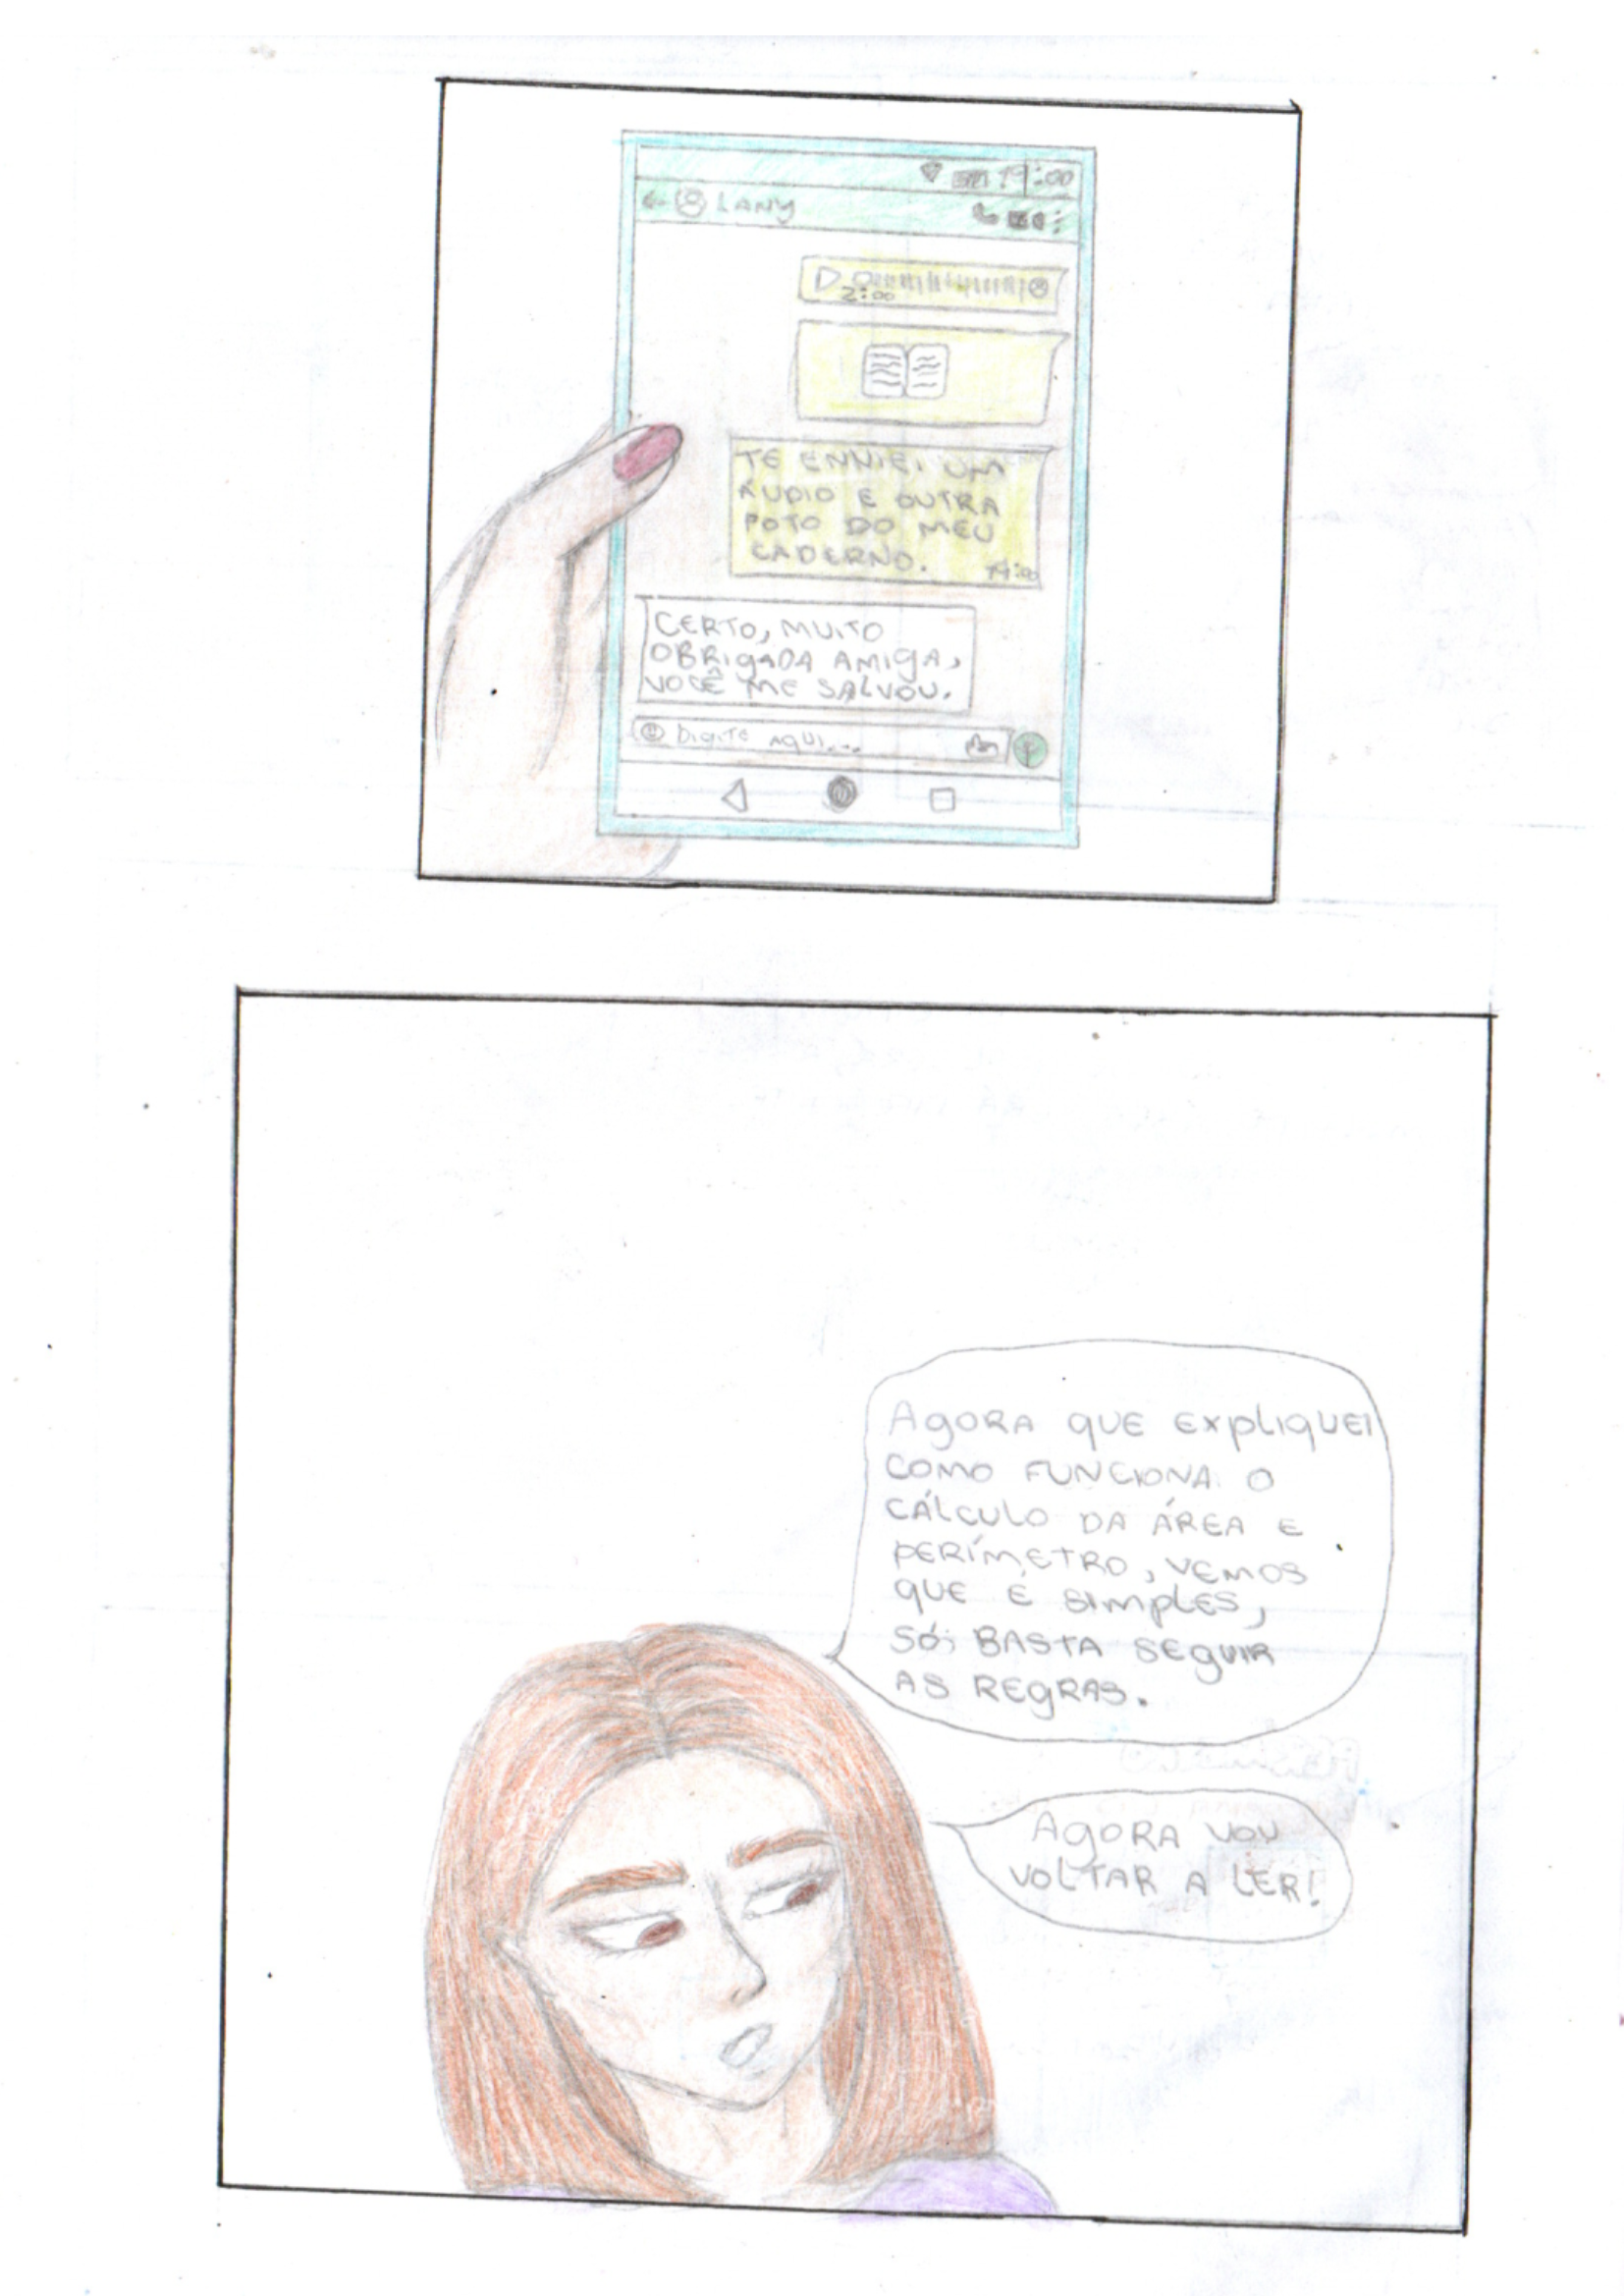 19:00
LANY
2:00
TE ENVIEI UM
ÁUDIO E OUTRA
FOTO DO MEU
CADERNO.
19:00
CERTO, MUITO
OBRIGADA AMIGA,
VOCÊ ME SALVOU.
DIGITE AQUI...
AGORA QUE EXPLIQUEI
COMO FUNCIONA O
CÁLCULO DA ÁREA E
PERÍMETRO, VEMOS
QUE É SIMPLES,
SÓ, BASTA SEGUIR
AS REGRAS.
AGORA VOU
VOLTAR A LER!